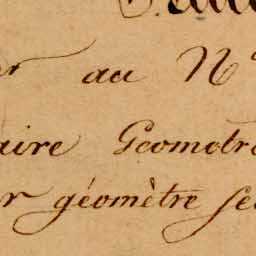 er au N°
aire Geomotre
r géomètre se